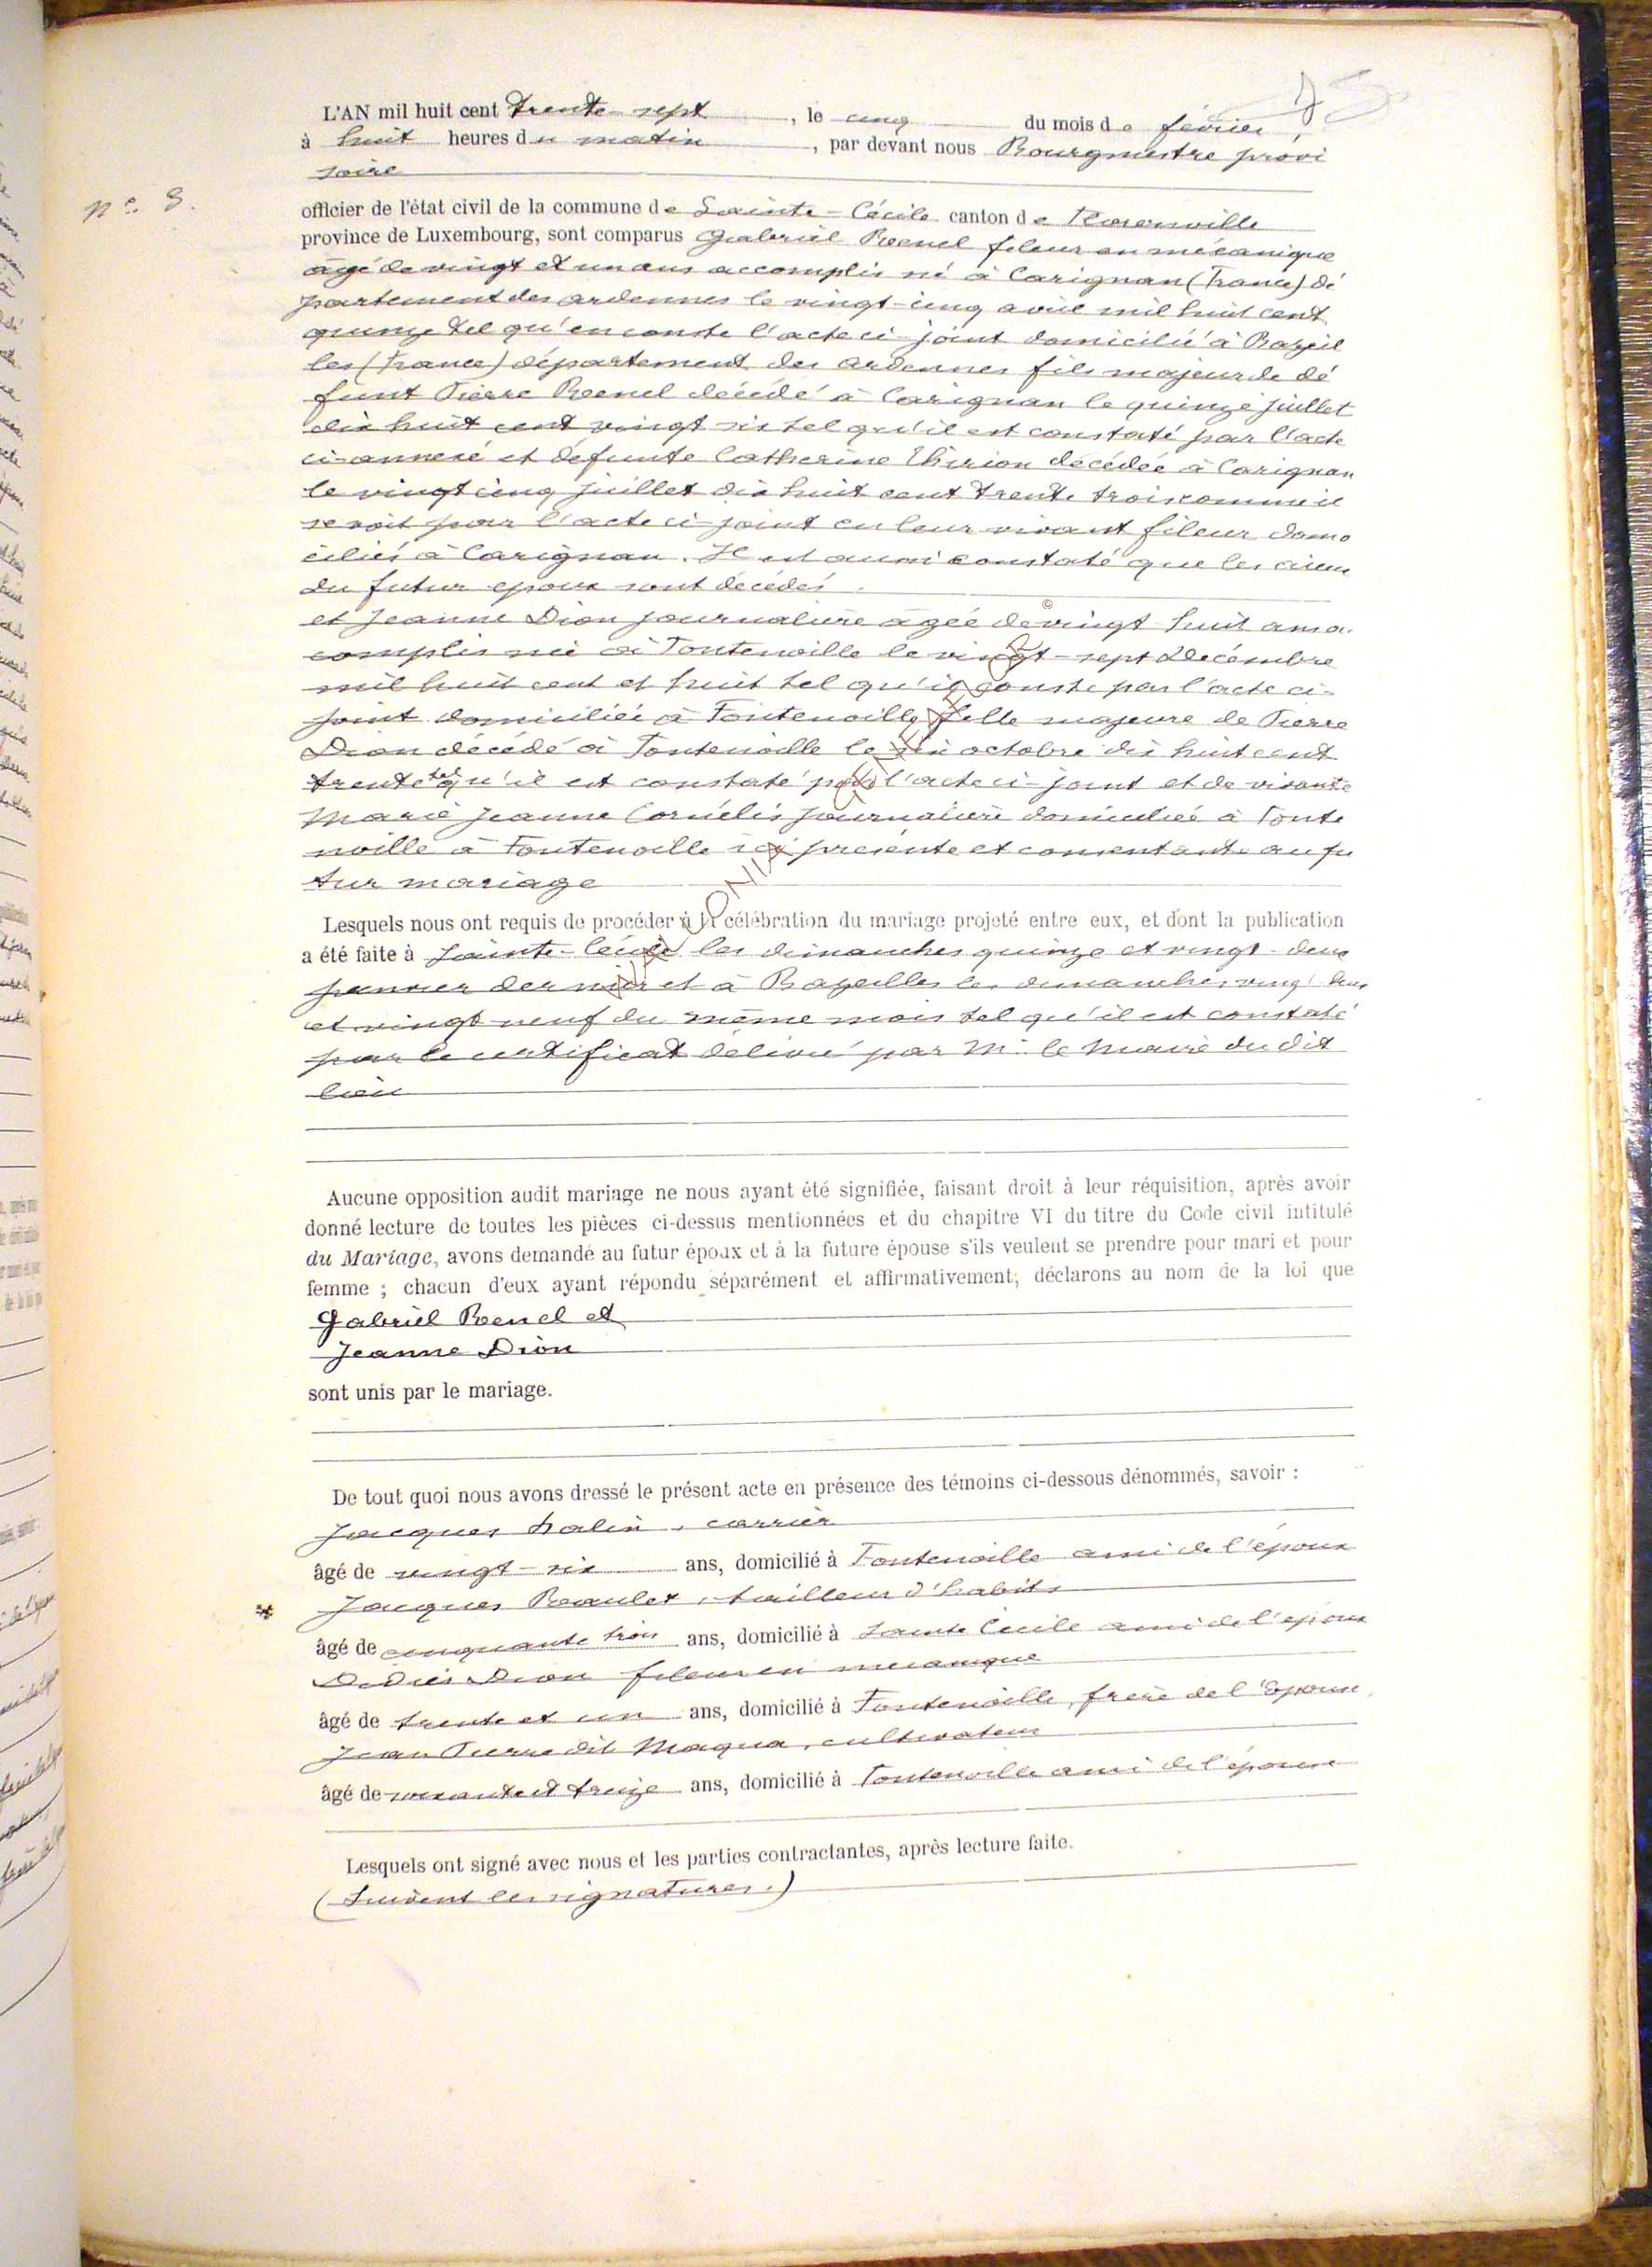 45
L'AN mil huit cent trente-sept, le cinq du mois de février,
à huit heures du matin, par devant nous Bourgmestre provi
soire
n° 3.
officier de l'état civil de la commune de Sainte-Cécile canton de Florenville
province de Luxembourg, sont comparus Gabriel Renel fileur en mécanique
âgé de vingt et un ans accomplis né à Carignan (France) dé
partement des ardennes le vingt-cinq avril mil huit cent
quinze tel qu'en conste l'acte ci-joint domicilié à Bazeil
les (France) département des ardennes fils majeur de dé
funt Pierre Renel décédé à Carignan le quinze juillet
dix huit cent vingt six tel qu'il est constaté par l'acte
ci-annexé et défunte Catherine Thirion décédée à Carignan
le vingt cinq juillet dix huit cent trente trois comme il
se voit par l'acte ci-joint en leur vivant fileur domi
ciliés à Carignan. Il est aussi constaté que les aieux
du futur epoux sont décédés
et Jeanne Dion journalière agée de vingt-huit ans ac
complis née à Fontenoille le vingt-sept Décembre
mil huit cent et huit tel qu'il conste par l'acte ci-
joint domiciliée à Fontenoille fille majeure de Pierre
Dion décédé à Fontenoille le six octobre dix huit cent
trente tel qu'il est constaté par l'acte ci-joint et de vivante
Marie Jeanne Cornélis journalière domiciliée à Fonte
noille à Fontenoille ici présente et consentante au fu
tur mariage
Lesquels nous ont requis de procéder à la célébration du mariage projeté entre eux, et dont la publication
a été faite à Sainte-Cécile les dimanches quinze et vingt-deux
janvier dernier et à Bazeilles les dimanches vingt deux
et vingt neuf du même mois tel qu'il est constaté
par le certificat délivré par Mr le Maire du dit
lieu
Aucune opposition audit mariage ne nous ayant été signifiée, faisant droit à leur réquisition, après avoir
donné lecture de toutes les pièces ci-dessus mentionnées et du chapitre VI du titre du Code civil intitulé
du Mariage, avons demandé au futur époux et à la future épouse s'ils veulent se prendre pour mari et pour
femme ; chacun d'eux ayant répondu séparément et affirmativement; déclarons au nom de la loi que
Gabriel Renel et
Jeanne Dion
sont unis par le mariage.
De tout quoi nous avons dressé le présent acte en présence des témoins ci-dessous dénommés, savoir :
Jacques, carrier
âgé de vingt-six ans, domicilié à Fontenoille ami de l'époux
Jacques, tailleur d'habits
âgé de cinquante trois ans, domicilié à Sainte Cécile ami de l'époux
Didier Dion fileur en mecanique
âgé de trente et un ans, domicilié à Fontenoille, frère de l'Epouse
Jean Pierre dit Maqua, cultivateur
âgé de soixante et treize ans, domicilié à Fontenoille ami de l'épouse
Lesquels ont signé avec nous et les parties contractantes, après lecture faite.
(Suivent les signatures.)